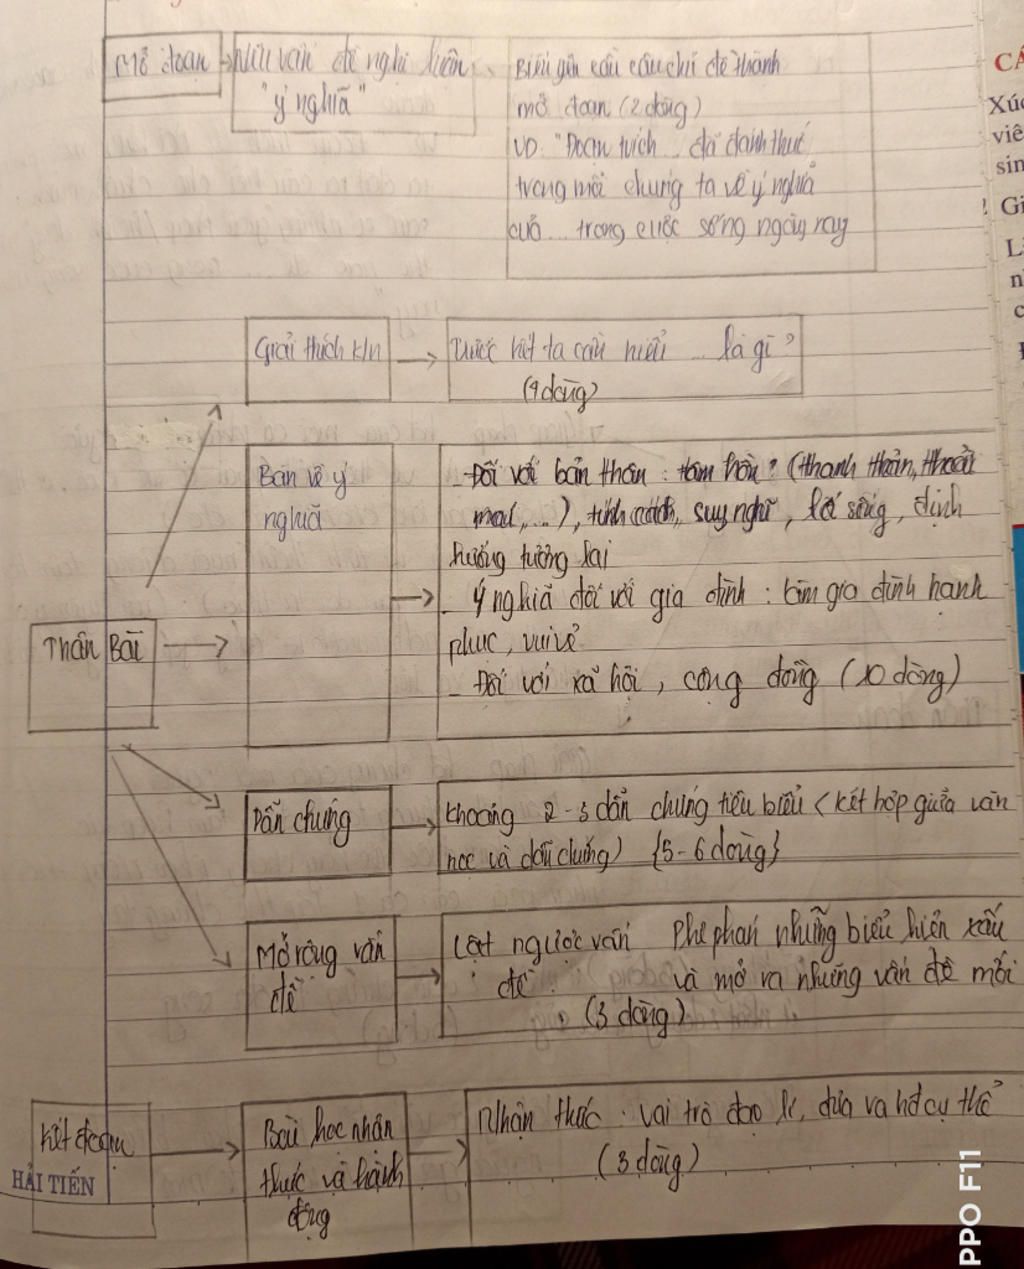 Mở đoạn
Nêu vấn đề nghị luận
"ý nghĩa"
Biến yêu cầu câu chủ đề thành
mở đoạn (2 dòng)
VD "Đoạn trích ... đã đánh thức
trong mỗi chúng ta về ý nghĩa
của ... trong cuộc sống ngày nay
Giải thích KN
Trước hết ta cần hiểu ... là gì?
(4 dòng)
Thân Bài
Bàn về ý
nghĩa
- Đối với bản thân: tâm hồn? (thanh thản, thoải
mái,...), tính cách, suy nghĩ, lối sống, định
hướng tương lai
- Ý nghĩa đối với gia đình: gia đình hạnh
phúc, vui vẻ
- Đối với xã hội, cộng đồng (10 dòng)
Dẫn chứng
Khoảng 2-3 dẫn chứng tiêu biểu (kết hợp giữa văn
học và dẫn chứng) {5-6 dòng}
Mở rộng vấn
đề
Lật ngược vấn
đề:
Phê phán những biểu hiện xấu
và mở ra những vấn đề mới
(3 dòng)
Kết đoạn
Bài học nhận
thức và hành
động
Nhận thức: vai trò đạo lí, đưa ra hđ cụ thể
(3 dòng)
HẢI TIẾN
CÁ
Xúc
viê
sin
Gi
L
n
c
PPO F11